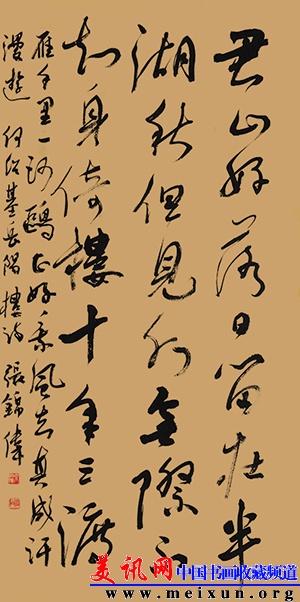 君山好落日留在半
湖秋但見水無際不
知身倚樓十年三渡
雁千里一沙鷗正好乘風去真成汗
漫遊 何紹基岳陽樓詩 張錦偉
美讯网 中国书画收藏频道
www.meixun.org